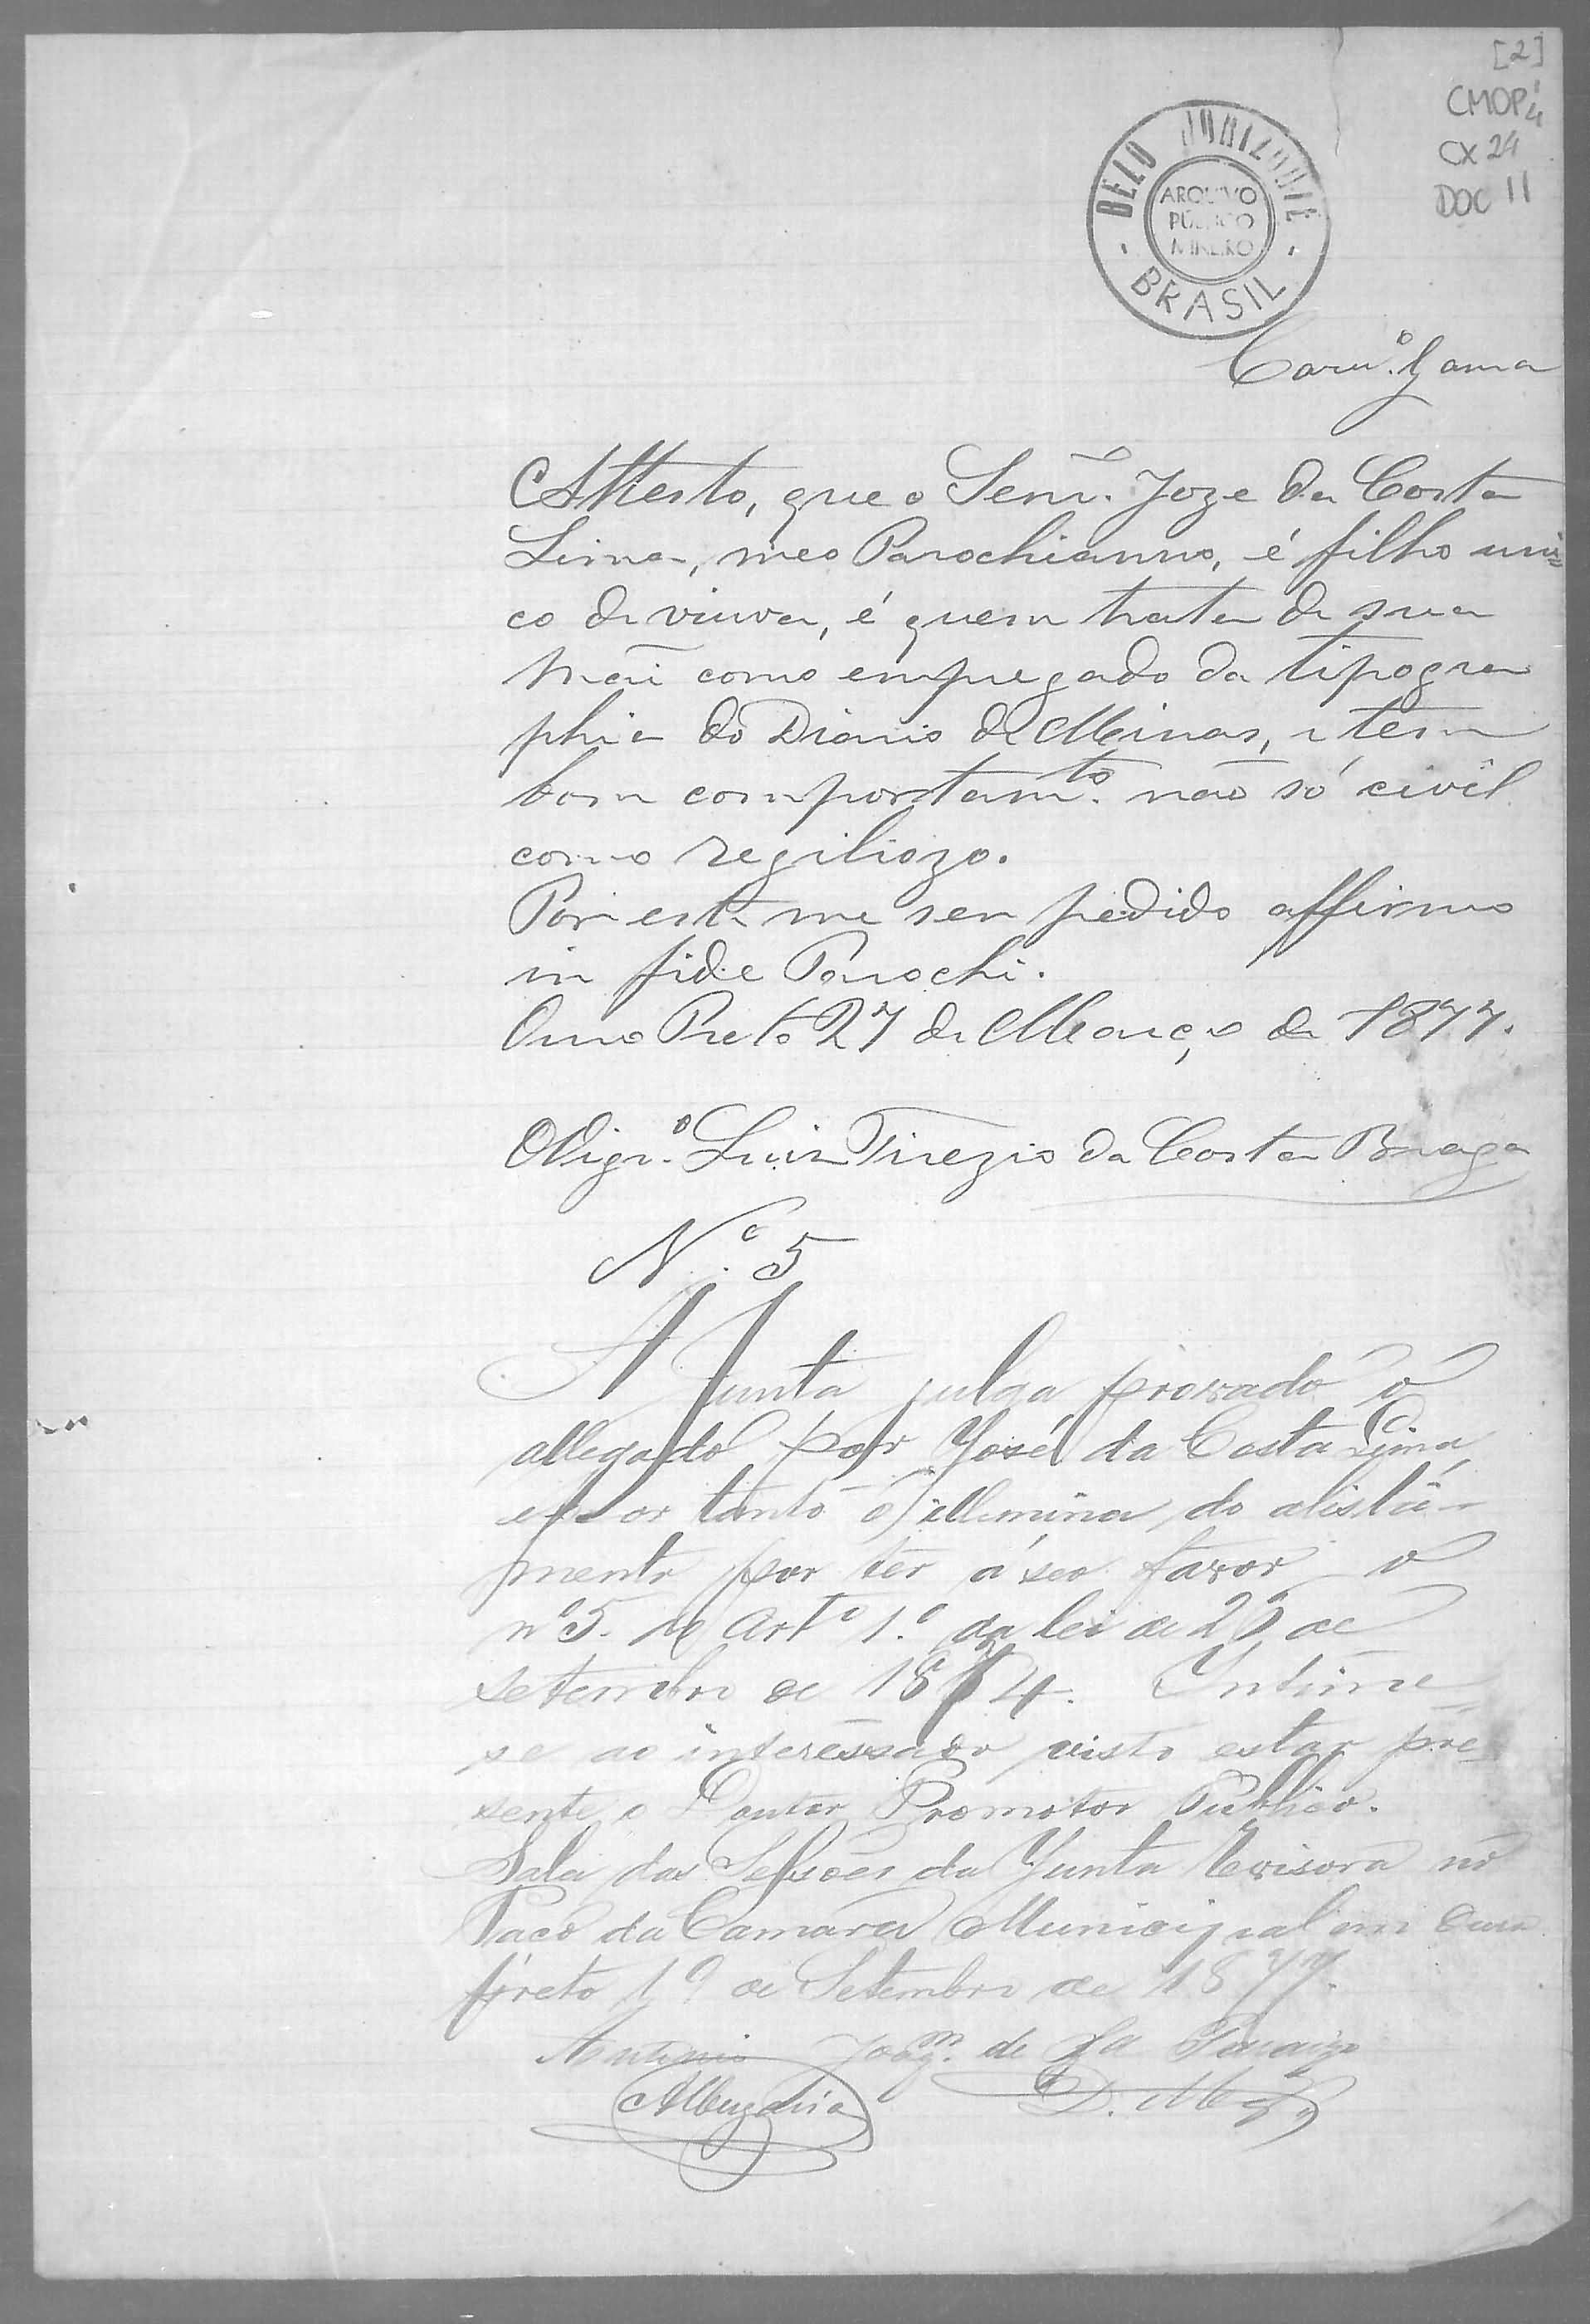 [2]
CMOP 4
CX 24
DOC 11
BELO HORIZONTE
ARQUIVO
PÚBLICO
MINEIRO
BRASIL
Gama
Attesto, que o Senr. Joze da Costa
Lima, meo Parochianno, é filho uni=
co de viuva, é quem trata de sua
Mãi como empregado da tipogra
phia do Diario de Minas, e tem
bom comportamto. não só civîl
como regiliozo.
Por este me ser pedido affirmo
in fide Parochi.
Ouro Preto 27 de Março de 1877.
Vigro. Luiz Tirezio da Costa Braga
No. 5
A Junta julga provado o
allegado por José da Costa Lima,
e por tanto o illemina do alista-
mento por ter á seo favor o
nº 5. do Artº 1.º da lei de 26 de
setembro de 1874. Intime
se ao interessado visto estar pre-
sente o Doutor Promotor Publico.
Sala das Sessões da Junta Revisora no
Paço da Camara Municipal em Ouro
preto 1º de Setembro de 1877.
Antonio Joaqm. de